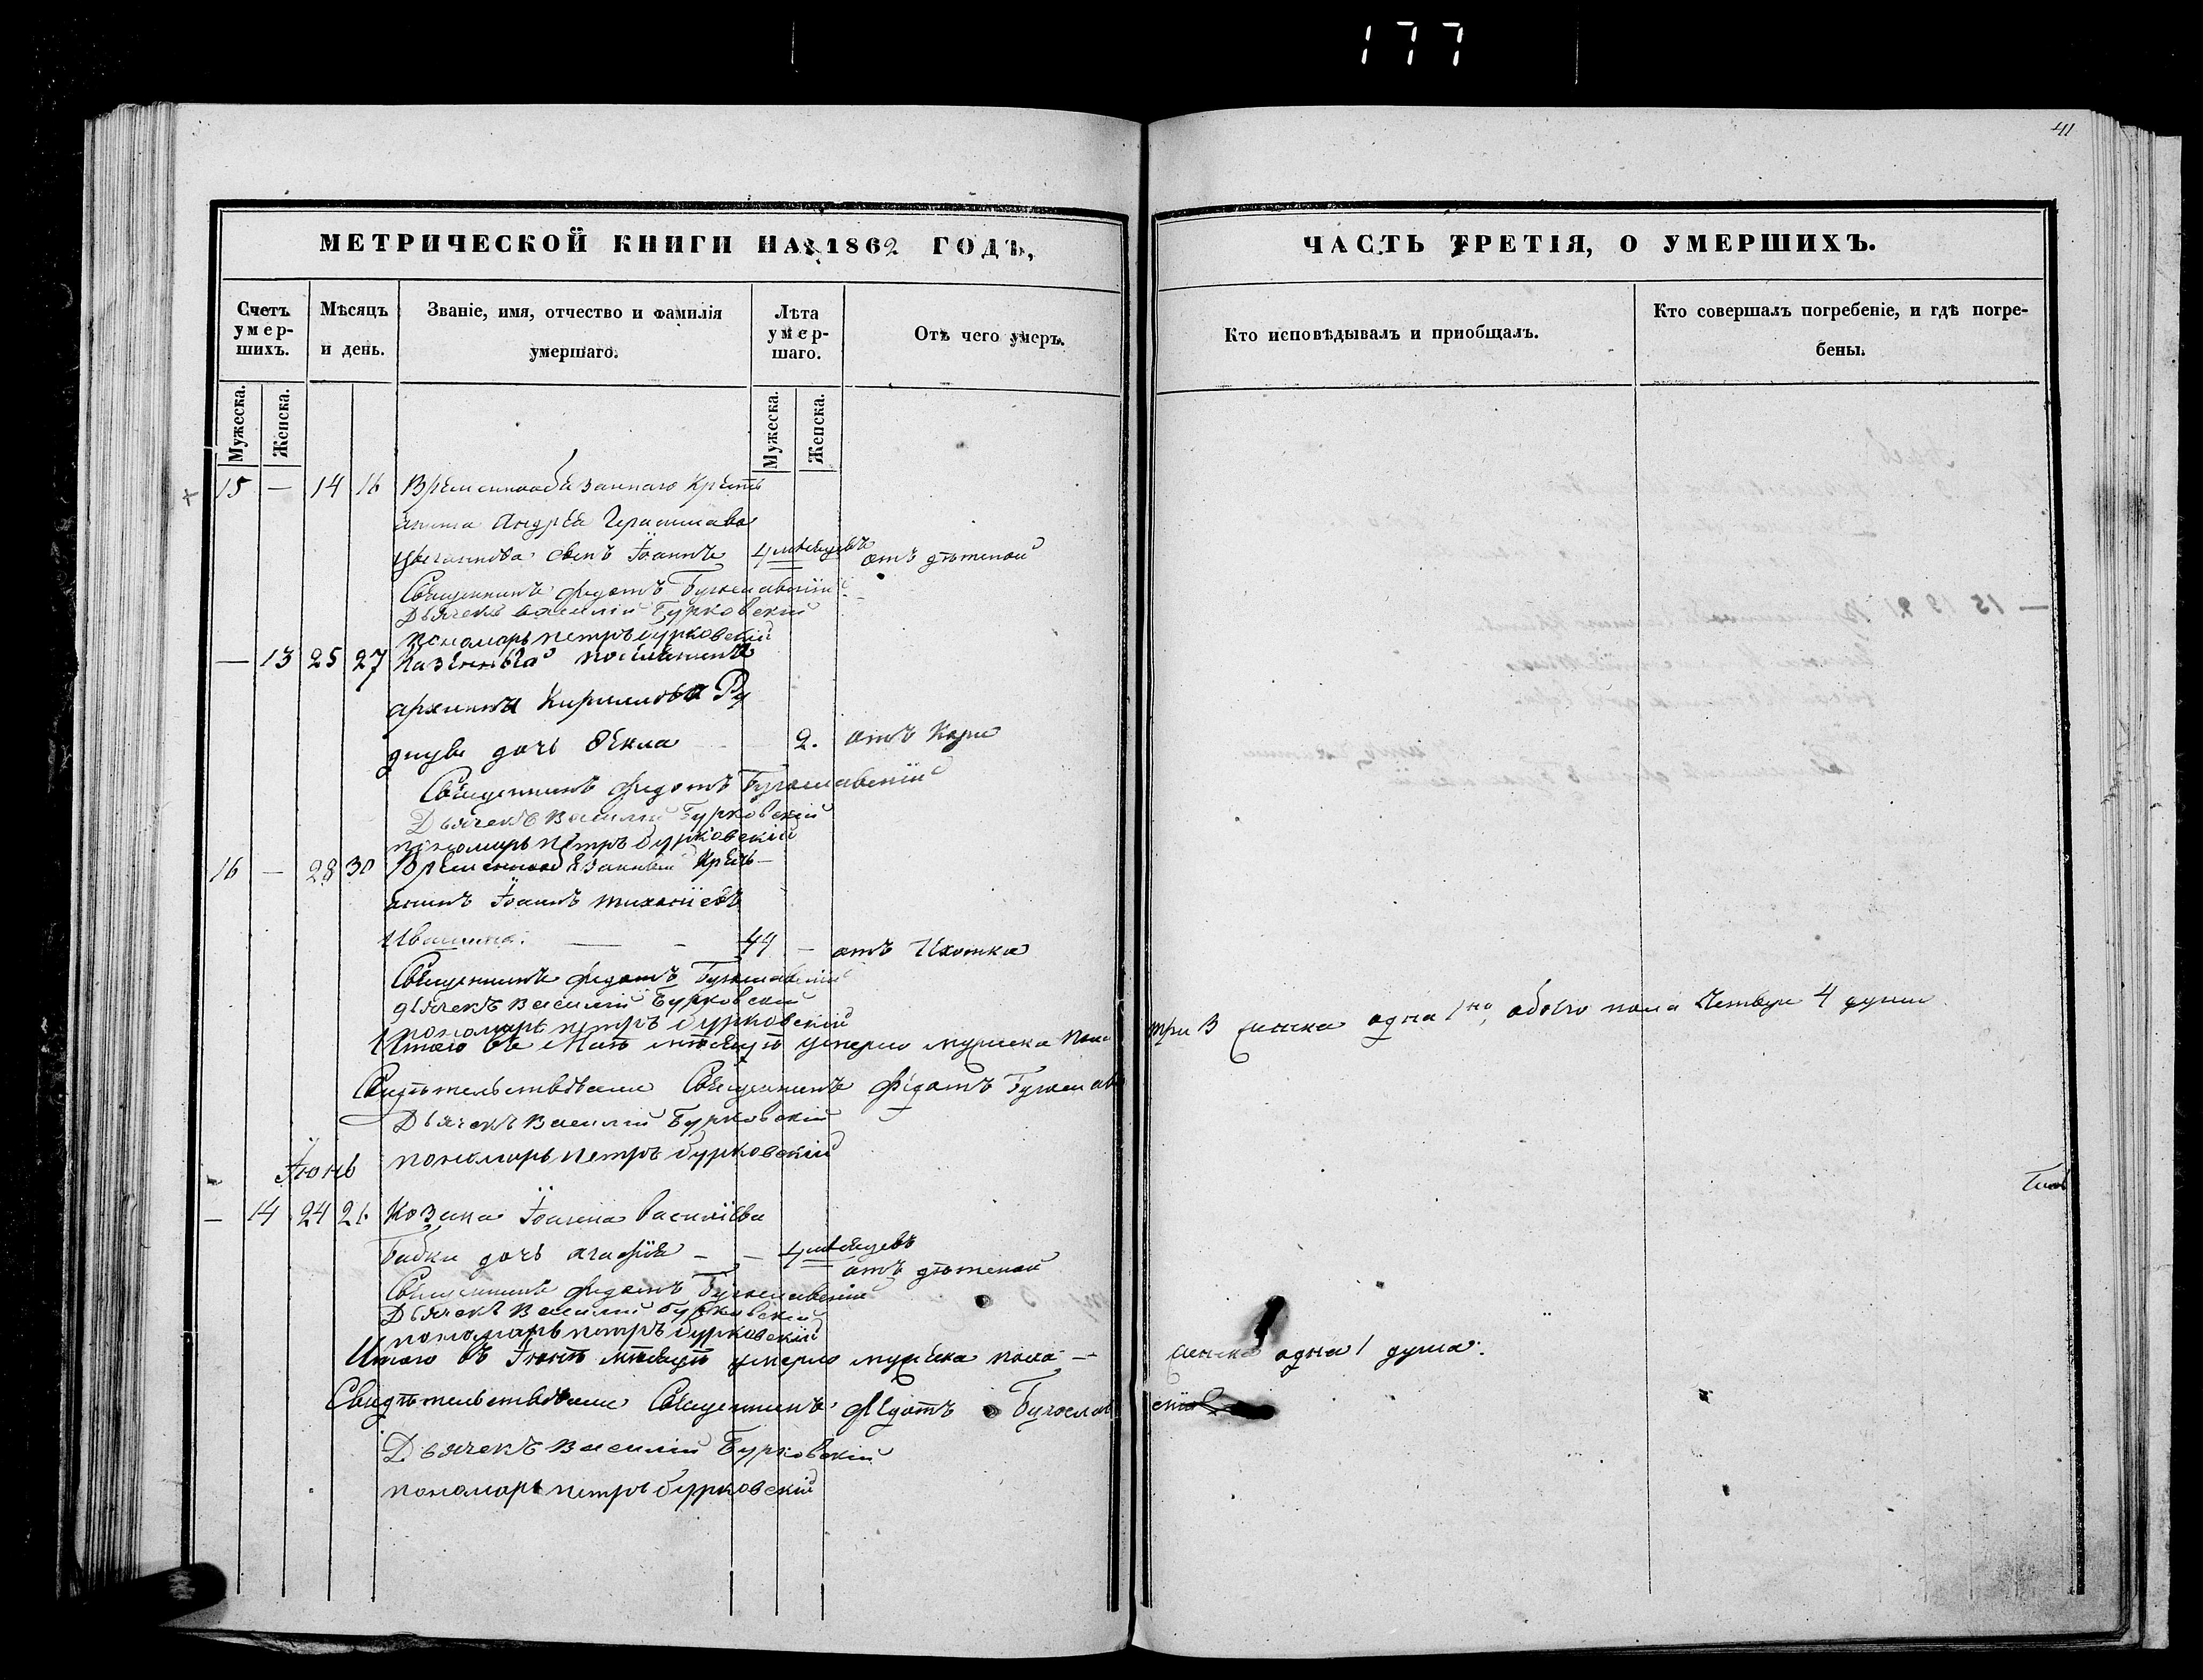 177
41
МЕТРИЧЕСКОЙ КНИГИ НА 1862 ГОДЪ,
Счетъ умер-шихъ.
Мѣсяцъ и день.
Званіе, имя, отчество и фамилія
умершаго.
Лѣта умер-шаго.
Отъ чего умеръ.
Мужеска.
Женска.
Мужеска.
Женска.
15 — 14 16 Временнообязаннаго Крестъ
янина Андрея Герасимова
сынъ Іоаннъ 4 мѣсяцевъ отъ дѣтской
Священникъ Федотъ
Дьячекъ Василій Бурковскій
пономарь петръ бурковскій
— 13 25 27 Казеннаго поселянина
архипа Кирилова Ру
дцувы дочь Ѳекла 2. отъ Кори
Священникъ Федотъ
Дьячекъ Василій Бурковскій
пономарь петръ бурковскій
16 — 28 30 Временнообязанный Кресть-
янинъ Іоаннъ
Ивашина. — - 44 —
Священникъ Федотъ
дьячекъ Василій Бурковскій
пономарь петръ бурковскій
Итого въ Маѣ мѣсяцѣ умерло мужеска пола
Свидѣтельствовали Священникъ Федотъ
Дьячекъ Василій Бурковскій
пономарь петръ бурковскій
Іюнь
— 14 24 26 Козака Іоанна Василіева
Бабки дочь агафія — — 4 мѣсяцевъ
отъ дѣтской
Священникъ Федотъ
Дьячекъ Василій Бурковскій
пономарь петръ бурковскій
Итого въ Іюнѣ мѣсяцѣ умерло мужеска пола —
Свидѣтельствовали Священникъ Федотъ
Дьячекъ Василій Бурковскій
пономарь петръ бурковскій
ЧАСТЬ ТРЕТІЯ, О УМЕРШИХЪ.
Кто исповѣдывалъ и пріобщалъ.
Кто совершалъ погребеніе, и гдѣ погре-
бены.
три 3 женска одна 1на, обоего пола Четыри 4 души
женска одна 1 душа.